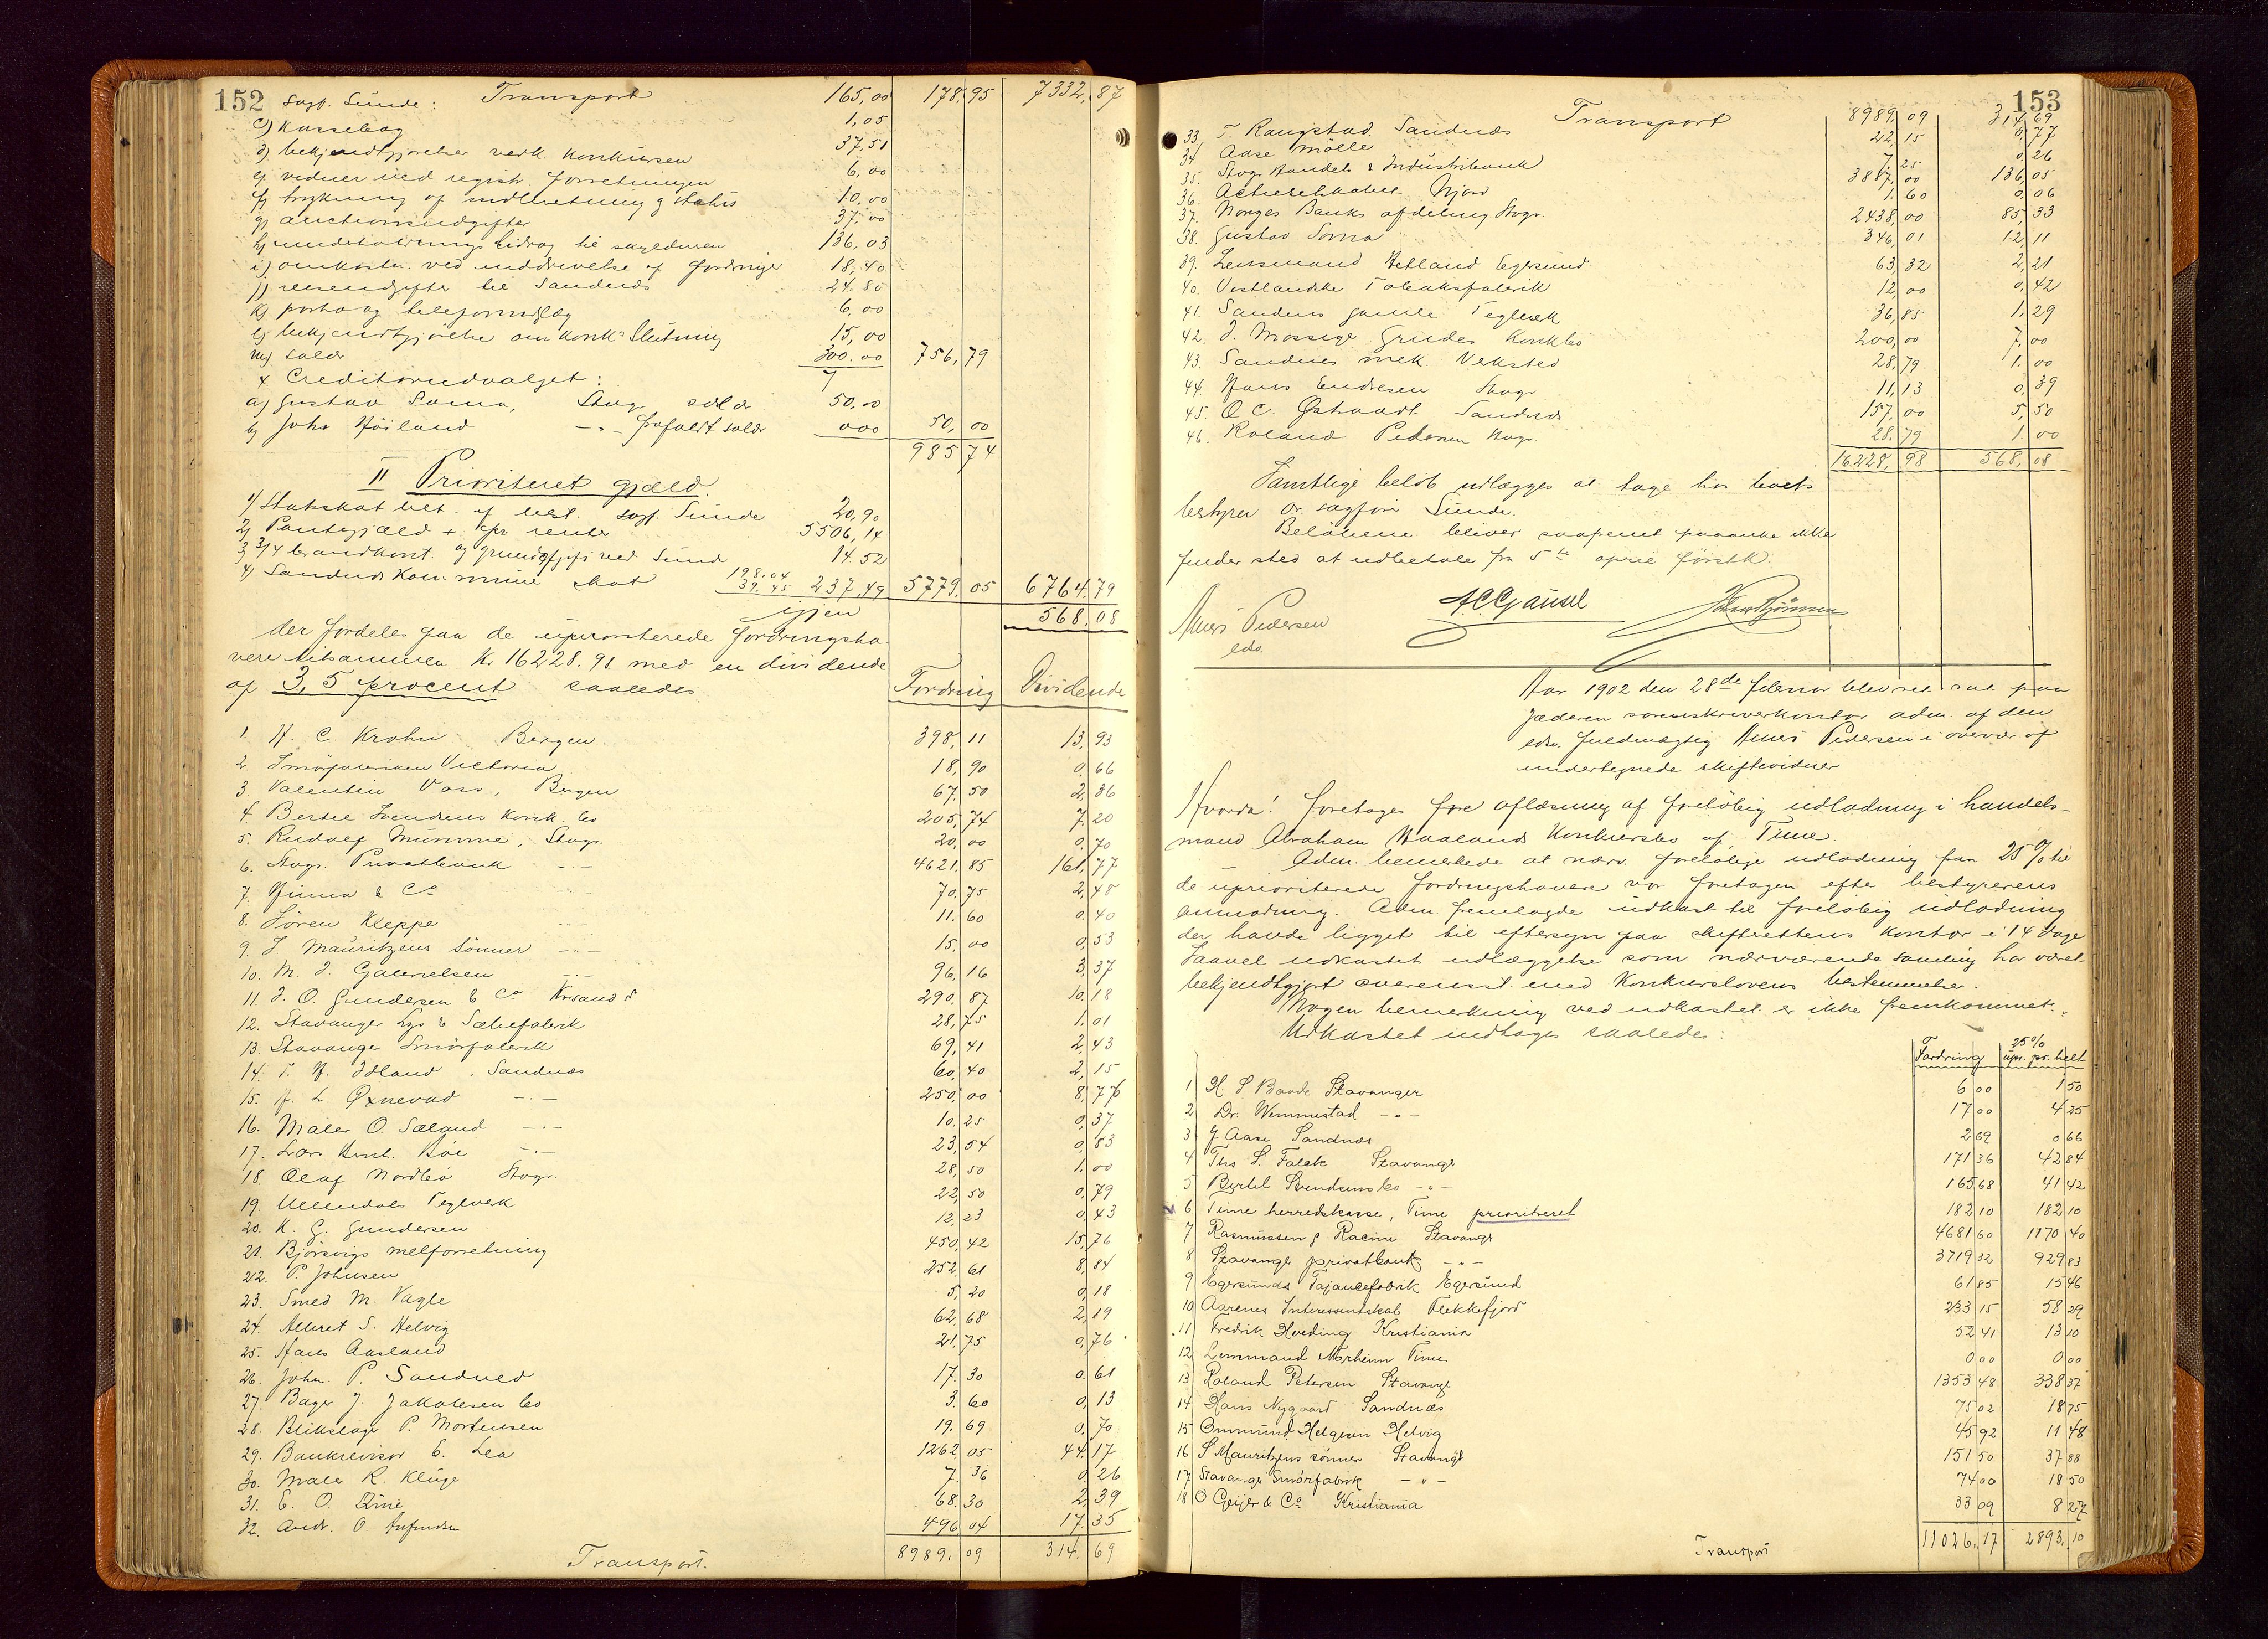 152 Sagf. Sünde: Transport 165,00 178,95 7332,87
c) Kassebog 1,05
d) bekjendtgjørelser vedk. Konkursen 37,51
e) vidner ved regist. forretningen 6,00
f) trykning af indberetning g status 10,00
g) auctionsudgifter 37,00
h) underholdningsbidrag til skyldneren 136,03
i) omkostn. ved inddrivelse af fordringer 18,40
j) reiseudgifter til Sandnæs 24.80
k) porto og telefonudlæg 6,00
l) bekjendtgjørelse om konk. Slutning 15,00
m) salær 300.00 756,79
4 Creditorudvalget:
a) Gustav Soma, Stvgr. salær 50,00
b) John Høiland -"- frafaldt salær 000 50,00
985 74
II Prioriteret gjæld.
1) Statskat bet. af best. sagf. Sünde 20,90
2) Pantegjæld + renter 5506,14
3) 3/4 brandkont. og ved Sünd 14.52
4) Sandnæs Kommune skat 198.04 39.45 237,49 5779.05 6764.79
igjen 568.08
der fordeles paa de uprioriterede fordringsha-
vere tilsammen Kr 16228.98 med en dividende
af 3,5 procent saaledes Fordring Dividende
1. H. C. Krohn Bergen 398,11 13,93
2. Smørfabriken Victoria 18,90 0,66
3. Valentin Voss, Bergen 67,50 2,36
4. Bertel Svendsens Konk. bo 205,74 7.20
5. Rudolf Mümme, Stvgr. 20,00 0,70
6. Stvgr. Privatbank -"- 4621,85 161,77
7. Jinna & Co -"- 70,75 2,48
8. Sören Kleppe -"- 11.60 0.40
9. S. Mauritzens Sönner -"- 15,00 0,53
10. M. J. Gabrielsen -"- 96,16 3,37
11. J. O. Gundersen & Co Krsand S. 290.87 10,18
12. Stavanger Lys & Sæbefabrik 28,75 1.01
13. Stavanger Smörfabrik 69,41 2,43
14. T. H. Idland, Sandnæs 60,40 2,15
15. J. L. Øxnevad -"- 250,00 8,76
16. Maler O. Sæland -"- 10.25 0,37
17. Lars Bøe -"- 23,54 0,83
18. Olaf Nordbö Stvgr. 28,50 1.00
19. Ullendals Teglverk 22,50 0,79
20. K. G. Gundersen 12,23 0,43
21. Bjørsvigs melforretning 450,42 15,76
22. P. Johnsen 252,61 8,84
23. Smed M. Vagle 5,20 0,18
24. Albret S. Helvig 62,68 2,19
25. Hans Aasland 21,75 0,76
26. John. P. Sandved 17.30 0.61
27. Bager J. Jakobsen bo 3.60 0,13
28. Blikslager P. Mortensen 19.69 0.70
29. Bankrevisor E. Lea 1262.05 44,17
30. Maler R. Kluge 7.36 0.26
31. E. O. Qine 68.30 2,39
32. Andr. O. 496 04 17.35
Transport. 8989.09 314.69
153
Transport 8989,09 314,69
33. T. Rangstad, Sandnæs 22,15 0,77
34. Aase Mölle 7,25 0.26
35. Stvgr. Handels & Industribank 3887,00 136,05
36. Actieselskabet Njörd 1.60 0,06
37. Norges Banks afdeling Stvgr. 2438,00 85,33
38. Gustav Soma 346,01 12,11
39. Lensmand Hetland Egersund 63,32 2,21
40. Vestlandske Tobaksfabrik 12,00 0,42
41. Sandnes gamle Teglverk 36,85 1,29
42. J. Mossige Grudes Konkbo 200,00 7,00
43. Sandnes mek. Verksted 28,79 1.00
44. Hans Endresen Stvgr. 11,13 0,39
45. O C. Østvardt Sandnæs 157,00 5,50
46. Roland Petersen Stvgr. 28.79 1.00
16228,98 568,08
Samtlige beløb udlægges at tage hos boets
bestyrer Or. sagfører Sünde.
Beløbene bliver saafremt paaanke ikke
finder sted at udbetale fra 5te april førstk.
Amers Pedersen A. C. Gausel
eds.
Aar 1902 den 28de februar blev ret sat paa
Jæderen sorenskriverkontor adm. af den
edsv. fuldmægtig Aners Pedersen i overvær af
undertegnede skiftevidner
Hvorda! foretoges fore oplæsning af foreløbig udlodning i handels-
mand Abraham Haalands Konkursbo af Time.
Adm. bemerkede at nærv. foreløbige udlodning paa 25% til
de uprioriterede fordringshavere var foretagen efter bestyrerens
anmodning. Adm. fremlagde udkast til foreløbig udlodning
der havde ligget til eftersyn paa skifterettens kontor i 14 dage
Saavel udkastets udlæggelse som nærværende samling har været
bekjendtgjort overensst. med Konkurslovens bestemmelser.
Nogen bemerkning ved udkastet er ikke fremkommet.
Udkastet indtages saaledes:
Fordring 25% upr. pr. helt
1 H. S Baade Stavanger 6 00 1 50
2 Dr. Wemmestad -"- 17 00 4 25
3 J Aase Sandnæs 2 69 0 66
4 Ths S. Falck Stavanger 171 36 42 84
5 Bertel Svendsens bo -"- 165 68 41 42
6 Time herredskasse, Time prioriteret 182 10 182 10
7 Rasmussen & Racine Stavangr 4681 60 1170 40
8 Stavanger privatbank -"- 3719 32 929 83
9 Egersunds Fajancefabrik Egersund 61 85 15 46
10 Aarenes Interessentskab Flekkefjord 233 15 58 29
11 Fredrik Hveding Kristiania 52 41 13 10
12 Lensmand Norheim Time 0 00 0 00
13 Roland Petersen Stavangr 1353 48 338 37
14 Hans Nygaard Sandnæs 75 02 18 75
15 Ommund Helgesen Helvig 45 92 11 48
16 S Mauritzens sønner Stavangr 151 50 37 88
17 Stavanger Smörfabrik -"- 74 00 18 50
18 O Geijer & Co Kristiania 33 09 8 27
Transport 11026,17 2893,10